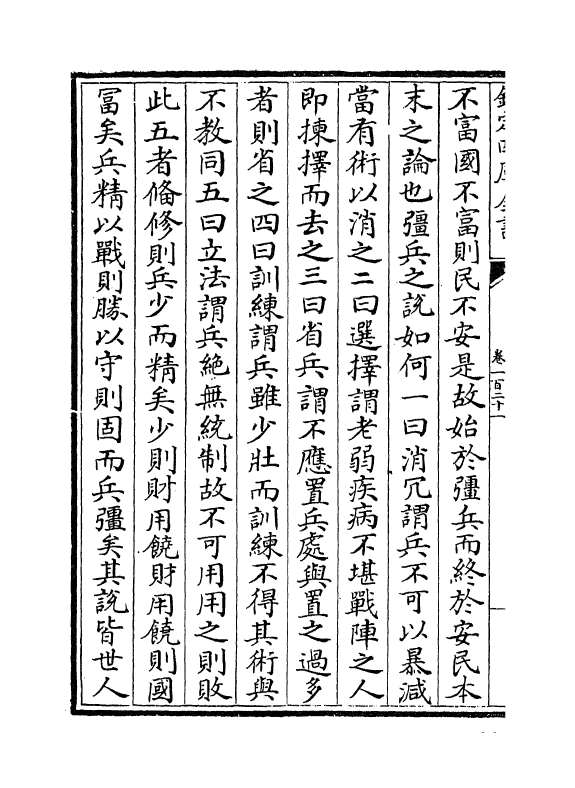 欽定四庫全書
卷一百二十一
不富國不富則民不安是故始於彊兵而終於安民本
末之論也彊兵之說如何一曰消冗謂兵不可以暴減
當有術以消之二曰選擇謂老弱疾病不堪戰陣之人
即揀擇而去之三曰省兵謂不應置兵處與置之過多
者則省之四曰訓練謂兵雖少壯而訓練不得其術與
不教同五曰立法謂兵絶無統制故不可用用之則敗
此五者偹修則兵少而精矣少則財用饒財用饒則國
冨矣兵精以戰則勝以守則固而兵彊矣其説皆世人